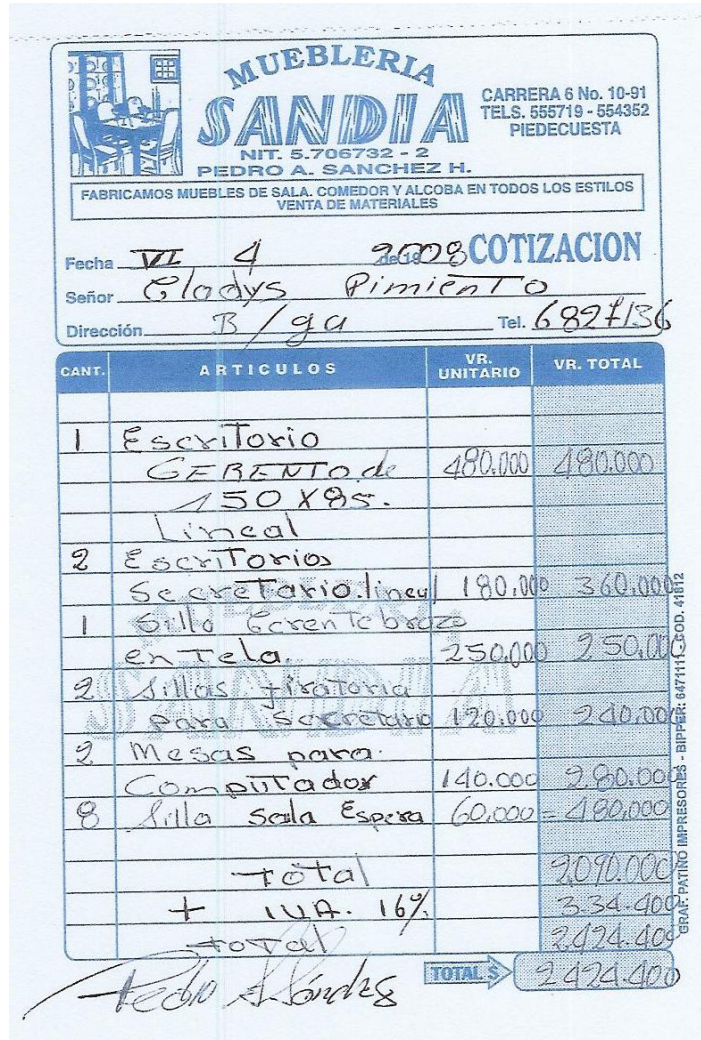 MUEBLERIA
SANDIA
NIT. 5.706732 - 2
PEDRO A. SANCHEZ H.
CARRERA 6 No. 10-91
TELS. 555719 - 554352
PIEDECUESTA
FABRICAMOS MUEBLES DE SALA. COMEDOR Y ALCOBA EN TODOS LOS ESTILOS
VENTA DE MATERIALES
Fecha VI 4 de 2008 COTIZACION
Señor Gladys Pimiento
Dirección B/ga Tel. 6827136
CANT. ARTICULOS VR. UNITARIO VR. TOTAL
1 Escritorio
GERENTO de 480.000 480.000
150 X 85.
Lineal
2 Escritorios
Secretario.lineal 180.000 360.000
1 Silla Gerente brazo
en Tela. 250.000 250.000
2 Sillas giratoria
para Secretario 120.000 240.000
2 Mesas para.
Computador 140.000 280.000
8 Silla Sala Espera 60.000 = 480.000
total 2.090.000
+ IVA. 16% 334.400
total 2424.400
TOTAL $ 2424.400
Pedro A. Sánchez
GRAF. PATIÑO IMPRESORES - BIPPER: 6471111 - COD. 41812